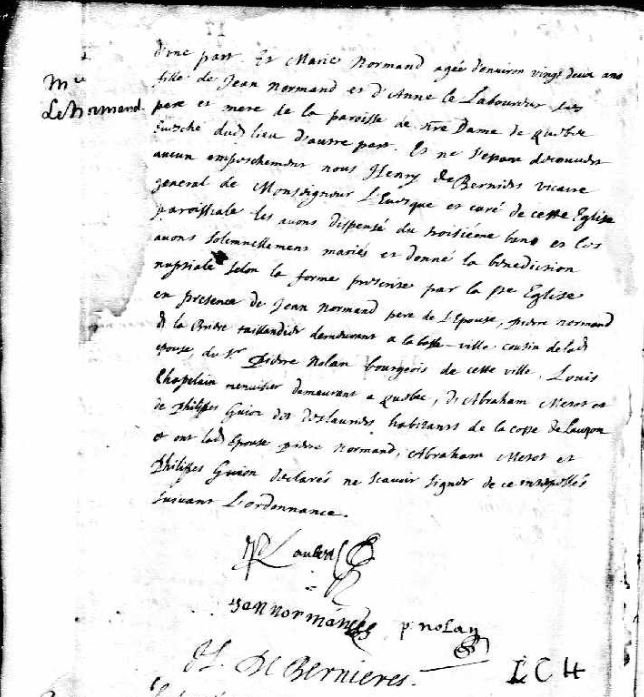 d'une part. Et Marie Normand agée d'environ vingt deux ans
Mie
LeNormand.
fille de Jean Normand et d'Anne le Laboureur ses
pere et mere de la paroisse de Nre Dame de Quebec
Evesché dudt lieu d'autre part. Et ne s'estant decouvert
aucun empeschement nous Henry de Bernieres vicaire
general de Monseigneur L'Evesque et curé de cette Eglise
paroissiale les avons dispensé du troisième banc et les
avons solemnellement mariés et donné la benediction
nuptiale selon la forme prescrite par la Ste Eglise
en presence de Jean Normand pere de L'Epouse, pierre normand
dt la Briere taillandier demeurant a la basse-ville cousin de ladt
epouse, du Sr Pierre Nolan bourgeois de cette ville, Louis
Chapelain menuisier demeurant a Quebec, d'Abraham Metot et
de Philippes Guion dit deslauriers habitants de la coste de Lauzon
et ont ladt Epouse pierre Normand, Abraham Metot et
Philippes Guion declarés ne scavoir signer de ce interpellés
suivant L'ordonnance.
Jan normand p. nolan
H. De Bernieres.
LCH